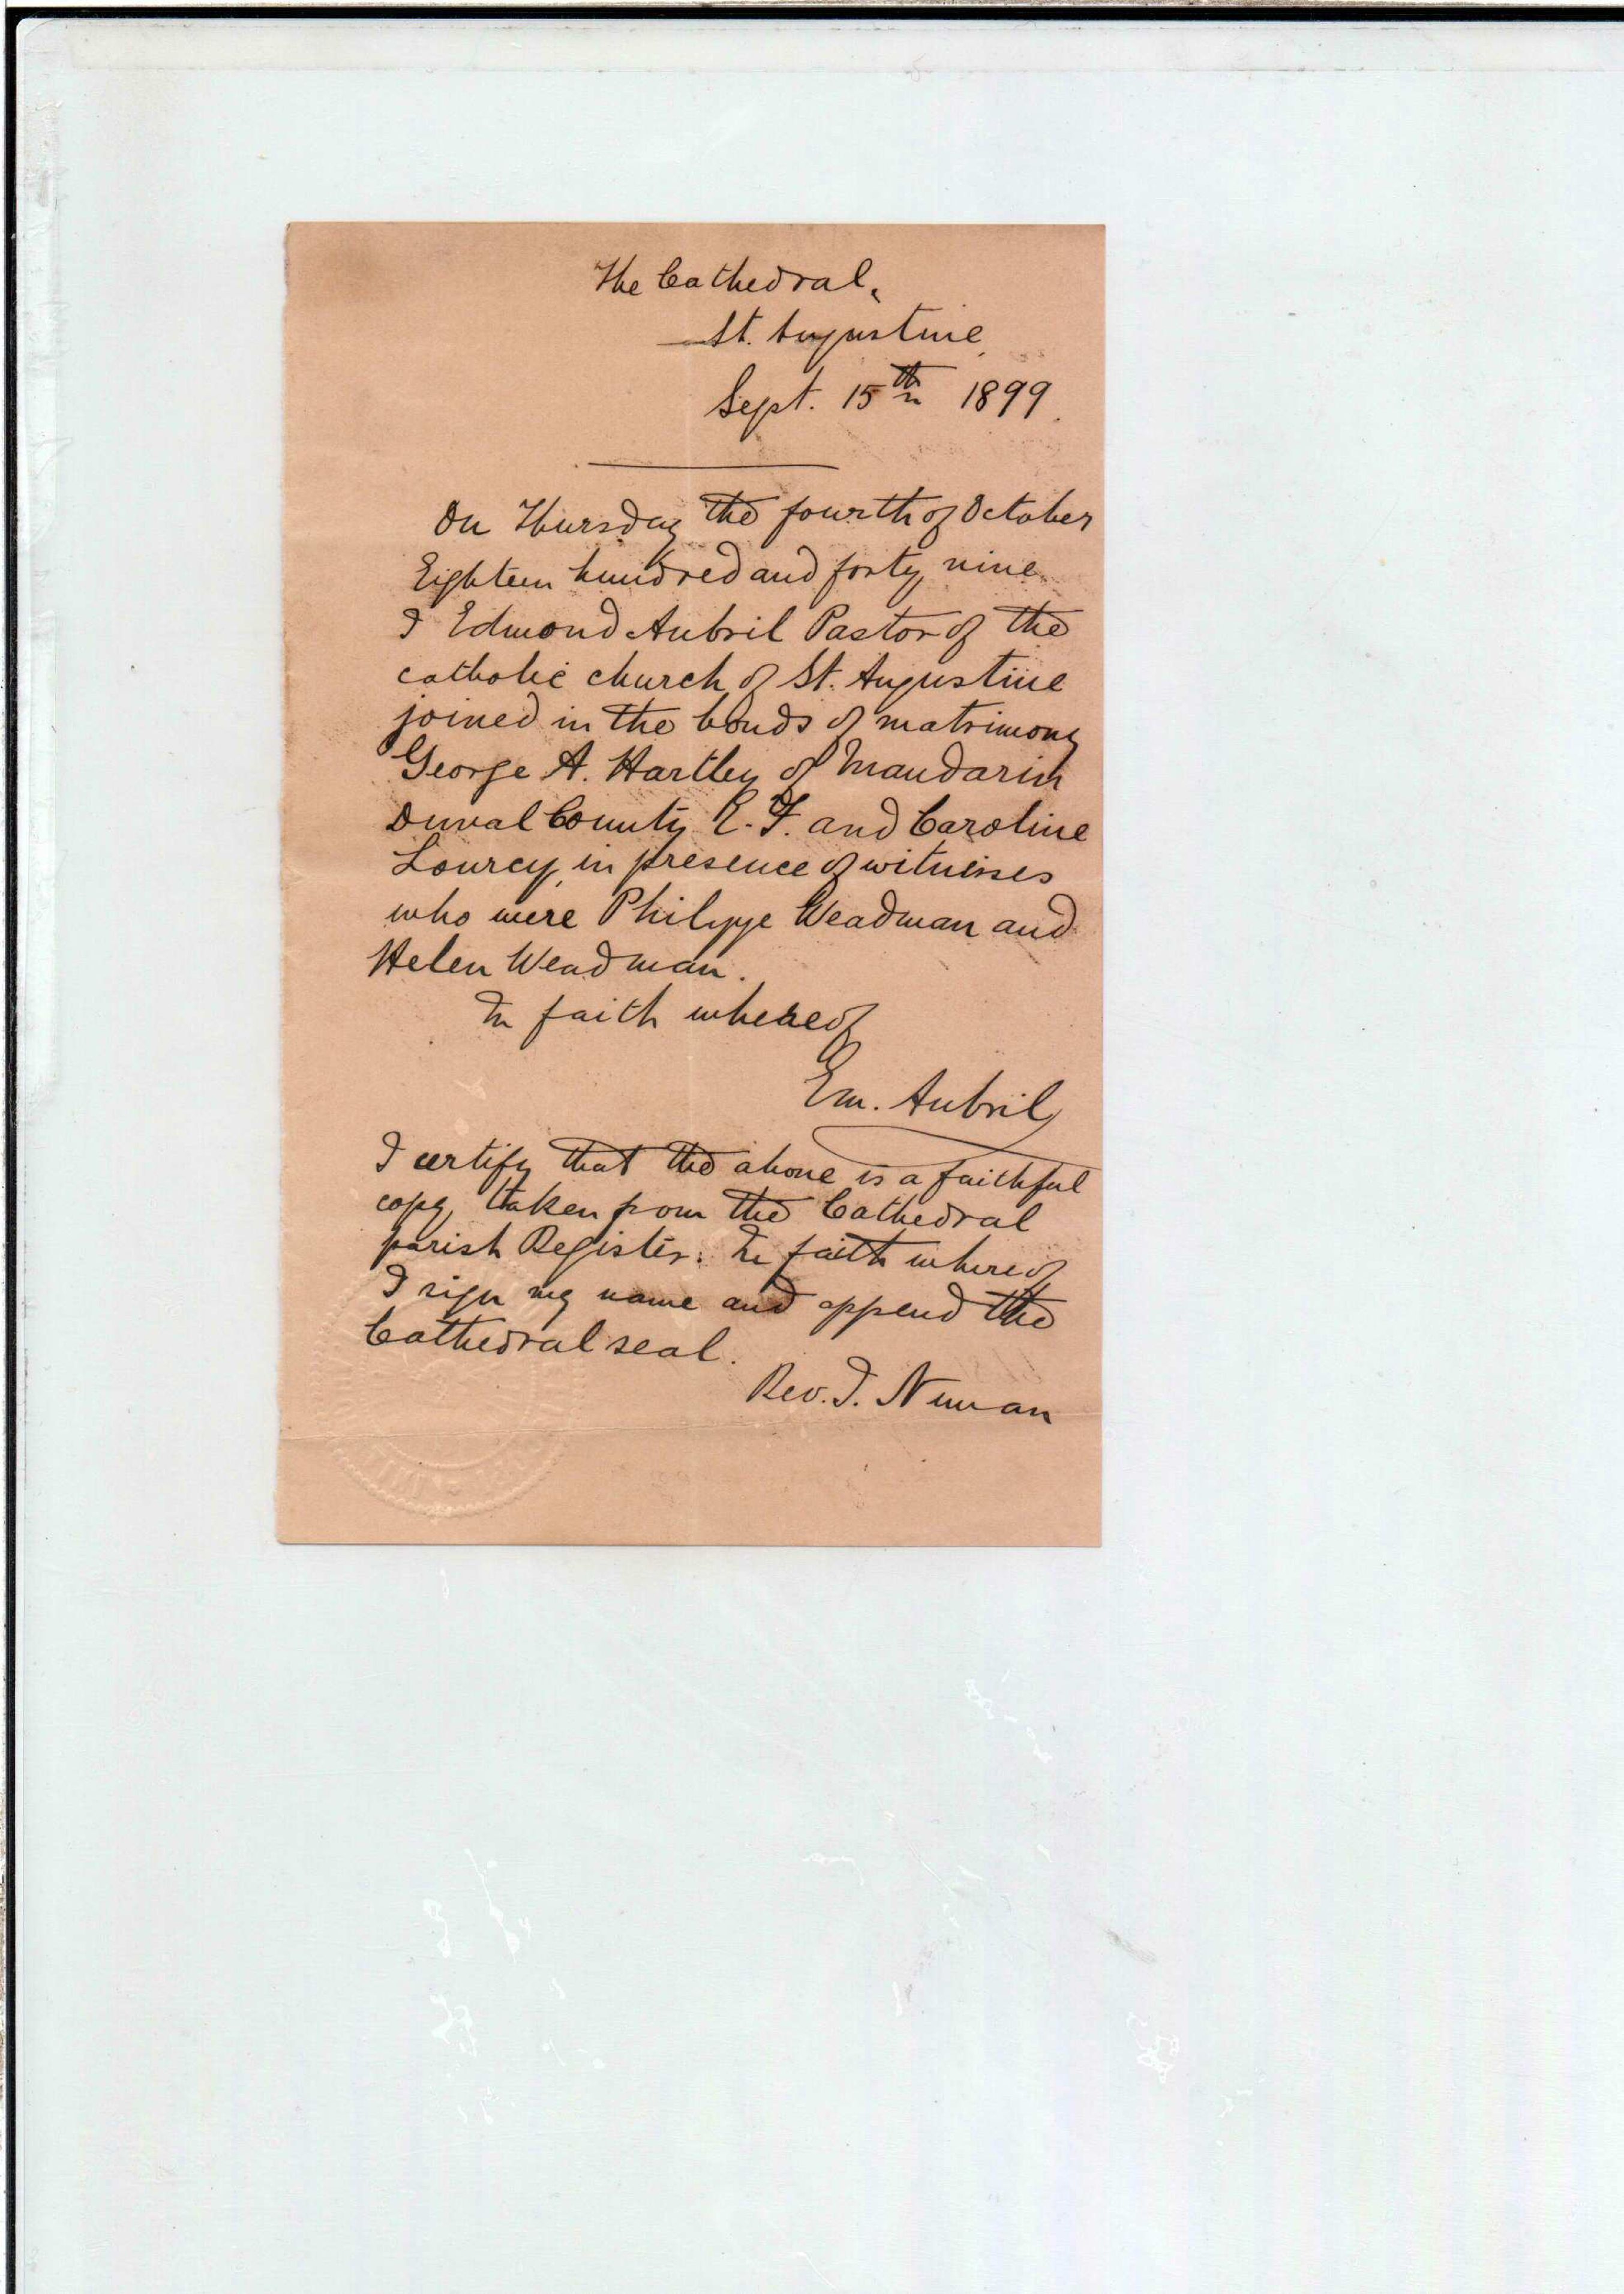 The Cathedral,
St. Augustine,
Sept. 15th 1899.
On Thursday the fourth of October
Eighteen hundred and forty nine
I Edmond Aubril Pastor of the
catholic church of St. Augustine
joined in the bonds of matrimony
George A. Hartley of Mandarin
Duval County E.F. and Caroline
Lourcy in presence of witnesses
who were Philippe Weadman and
Helen Weadman.
In faith whereof
Em. Aubril
I certify that the above is a faithful
copy, taken from the Cathedral
parish Register. In faith whereof
I sign my name and append the
Cathedral seal.
Rev. J. Nunan